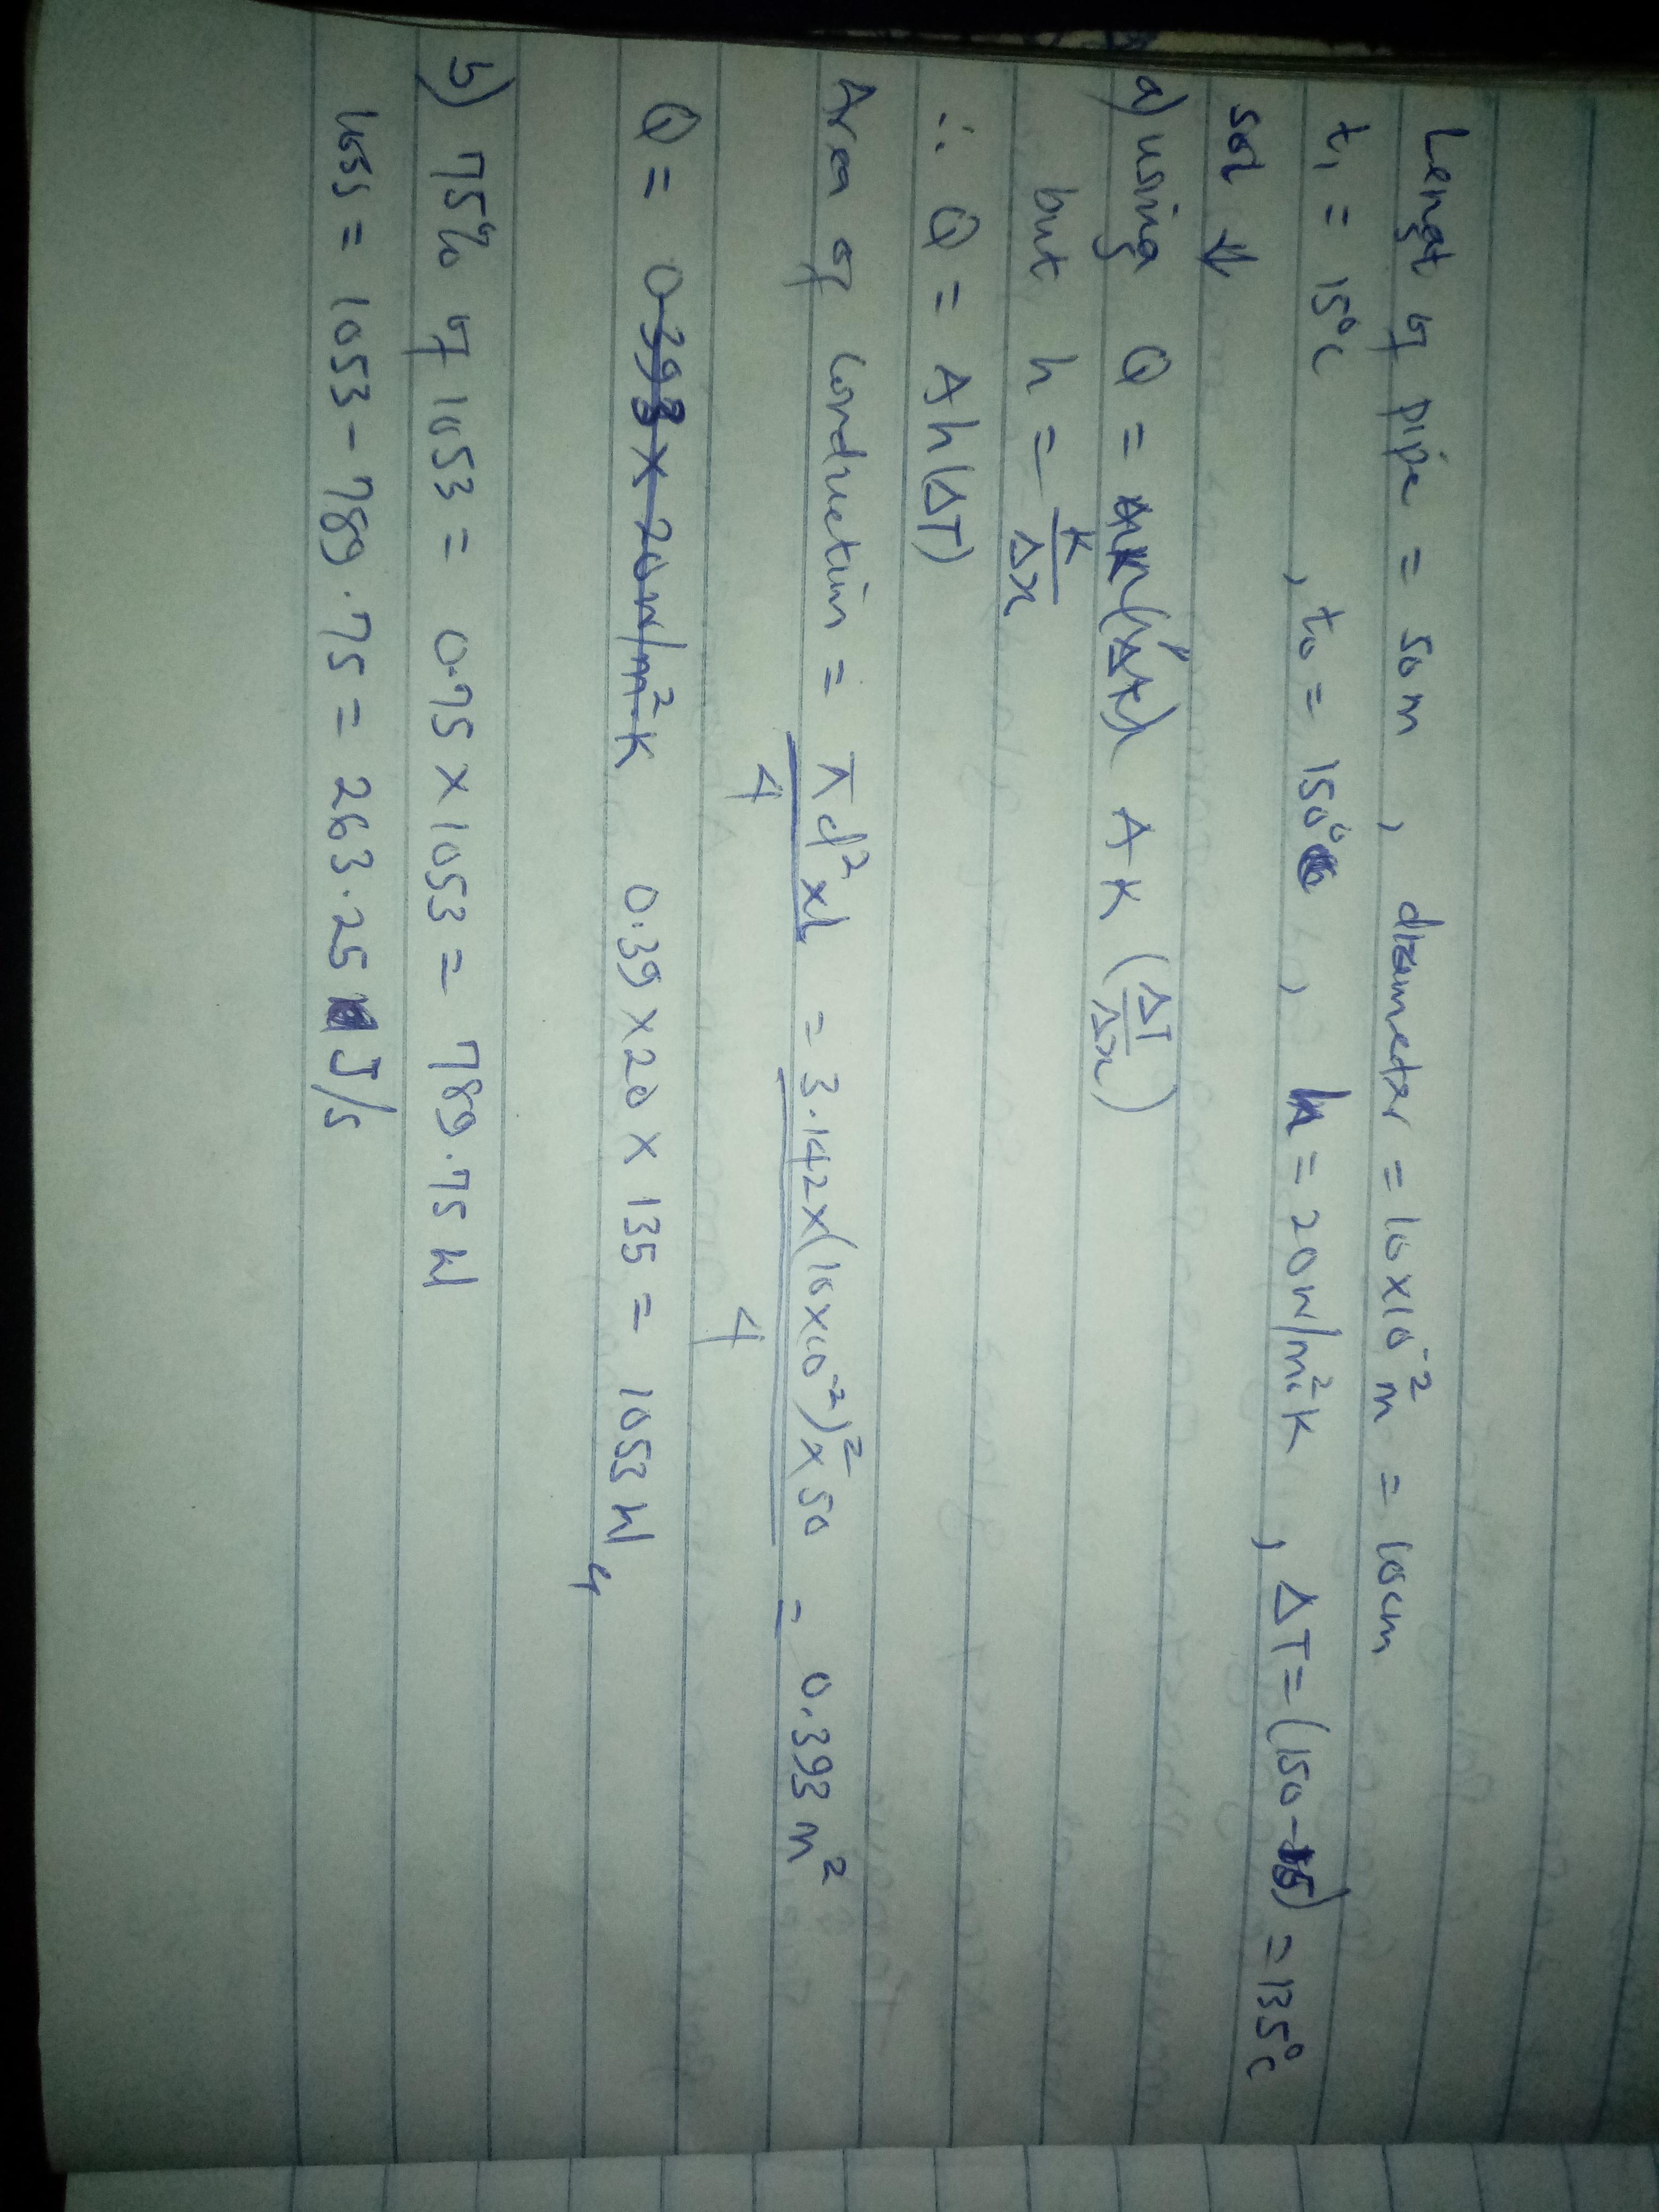 Lengt of pipe = 50m , diameter = 10x10⁻² m = 10cm
t₁ = 15°C , t₀ = 150° , h = 20W/m²K , ΔT = (150-15) = 135°C
sol ↓
a) using Q = A K (ΔT/Δx)
but h = K/Δx
∴ Q = Ah(ΔT)
Area of Conduction = πd²xL/4 = 3.142x(10x10⁻²)²x50/4 = 0.393 m²
Q = 0.393 x 20W/m²K 0.39 x 20 x 135 = 1053W
b) 75% of 1053 = 0.75 x 1053 = 789.75 W
loss = 1053 - 789.75 = 263.25 J/s